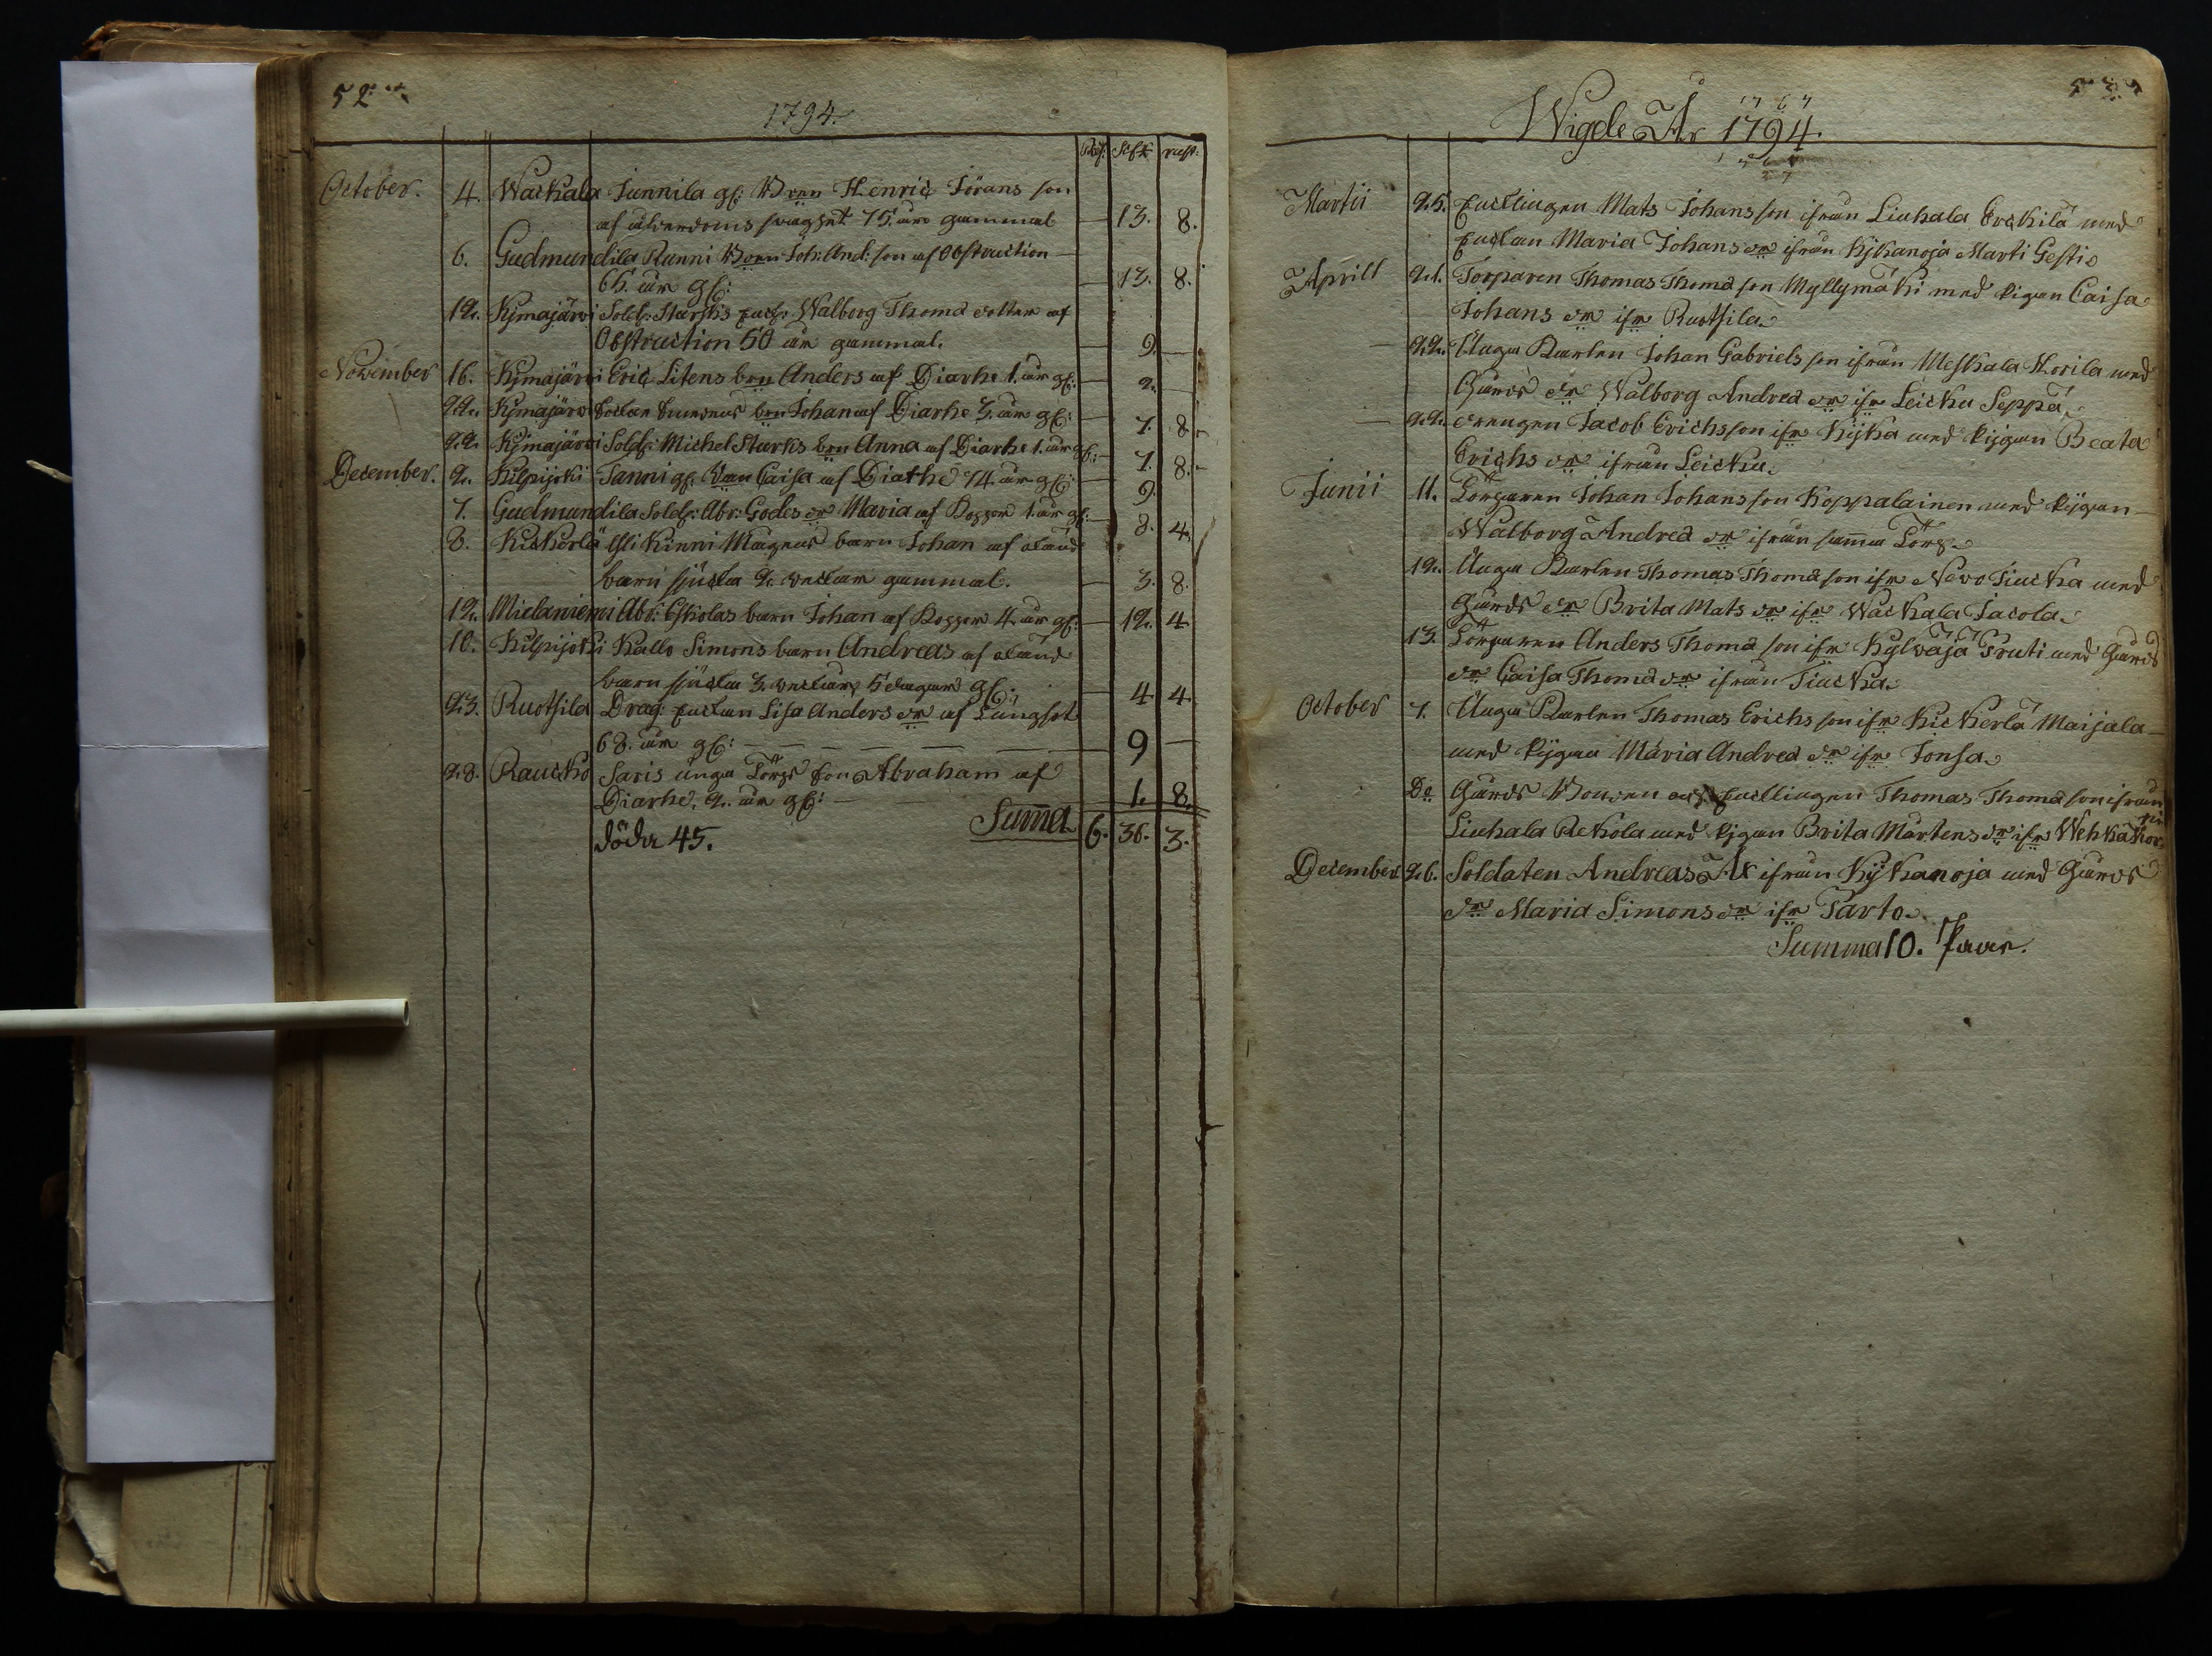 52
1794.
Rd: Sch: rust:
October. 4. Wackala Junnila gl: Bonn Henric Jörans son
af ålderdoms swaghet 75. åhr gammal — 13. 8.
6. Gudmundila Runni Bonn Joh: And: son af Obstruction
66. åhr gl: — 13. 8.
12. Kijmajärvi Sold: Starks Enck: Walborg Thomæ dotter af
Obstruction 50 åhr gammal. — 9. —
November 16. Kijmajärvi Eric Litens brn Anders af Diarhe 1. åhr gl: — 2. —
22. Kijmajärvi brn Johan af Diarhe 3. åhr gl: 7. 8
22. Kijmajärvi Sold: Michel Starks brn Anna af Diarhe 1. åhr gl: — 7. 8.
December. 2. Kilpijoki Tanni gl: Caisa af Diarhe 74 åhr gl: — 9.
7. Gudmundila Sold: Abr: Godes dr Maria af Koppor 1. åhr gl: — 8. 4.
8. Kickerlä Yli Kinni Magnus barn Johan af okänd
barn siuka 2. weckor gammal. — 3. 8.
12. Mielaniemi Abr: Eskolas barn Johan af Koppor 4. åhr gl: — 12. 4
10. Kilpijoki Kallo Simons barn Andreas af okänd
barn siuka 3. weckor, 5 dagar gl: — 4. 4.
23. Ruotsila Drag: Enckan Lisa Anders dr af Lungsot
68. åhr gl: — — — — — 9 —
28. Raucko Saris unga Torp: Son Abraham af
Diarhe, 2. åhr gl: — 1. 8.
döda 45. Summa 6. 36. 3.
Wigde År 1794.
Martii 25. Encklingen Mats Johansson ifrån Liuhala Erckilä med
Enckan Maria Johans dr ifrån Kijkanoja Marti Gestis
Aprill 21. Torparen Thomas Thomæ son Myllymäki med Pigan Caisa
Johans dr ifr Ruotsila.
— 22. Unga Karlen Johan Gabriels son ifrån Meskala Horila med
Gårds dr Walborg Andreæ dr ifr Leicku Seppä.
— 22. Drengen Jacob Erichsson ifr Kijka med Pijgan Beata
Erichs dr ifrån Leicku.
Junii 11. Torparen Johan Johansson Koppalainen med Pijgan
Walborg Andreæ dr ifrån samma Torp.
12. Unga Karlen Thomas Thomæ son ifr Nevo Tiucka med
Gårds dr Brita Mats dr ifr Wackala Jacola.
13. Torparen Anders Thomæ son ifr Kylväjä Pruti med Gårds
dr Caisa Thomæ dr ifrån Tiucka.
October 7. Unga Karlen Thomas Erichs son ifr Kickerlä Maijala
med Pijgan Maria Andreæ dr ifr Jonsa.
Do Gårds Bonden och Encklingen Thomas Thomæ son ifrån
Liuhala Rekola med Pigan Brita Mårtens dr ifr Wehkakorpi
December 26. Soldaten Andreas Ax ifrån Kijkanoja med Gårds
dr Maria Simons dr ifr Tarto.
Summa 10. Paar.